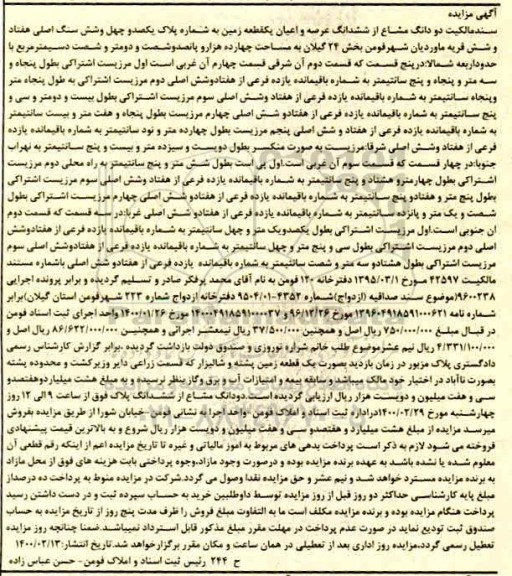 آگهی مزایده
سندمالکیت دو دانگ مشاع از ششدانگ عرصه و اعیان یکقطعه زمین به شماره پلاک یکصدو چهل وشش سنگ اصلی هفتاد
و شش قریه ماوردیان شهرفومن بخش ۲۴ گیلان به مساحت چهارده هزارو پانصدوشصت و دومتر و شصت دسیمترمربع با
حدوداربعه شمالا:درپنج قسمت که قسمت دوم آن شرقی قسمت چهارم آن غربی است اول مرزیست اشتراکی بطول پنجاه و
سه متر و پنجاه و پنج سانتیمتر به شماره باقیمانده یازده فرعی از هفتادوشش اصلی دوم مرزیست اشتراکی به طول پنجاه متر
وپنجاه سانتیمتر به شماره باقیمانده یازده فرعی از هفتاد وشش اصلی سوم مرزیست اشتراکی بطول بیست و دومتر و سی و
پنج سانتیمتر به شماره باقیمانده یازده فرعی از هفتادو شش اصلی چهارم مرزیست بطول پنجاه و هفت متر و بیست سانتیمتر
به شماره باقیمانده یازده فرعی از هفتاد و شش اصلی پنجم مرزیست بطول چهارده متر و نود سانتیمتر به شماره باقیمانده یازده
فرعی از هفتاد وشش اصلی شرقا:مرزیست به صورت منکسر بطول دویست و سیزده متر و بیست و پنج سانتیمتر به نهراب
جنوبا:در چهار قسمت که قسمت سوم آن غربی است.اول مرزی است بطول شش متر و پنج سانتیمتر به راه محلی دوم مرزیست
اشتراکی بطول چهارمترو هشتاد و پنج سانتیمتر به شماره باقیمانده یازده فرعی از هفتاد وشش اصلی سوم مرزیست اشتراکی
بطول پنج متر و هفتادو پنج سانتیمتر به شماره باقیمانده یازده فرعی از هفتادو شش اصلی چهارم مرزیست اشتراکی بطول
شصت و یک متر و پانزده سانتیمتر به شماره باقیمانده یازده فرعی از هفتادوشش اصلی غربا:در سه قسمت که قسمت دوم
آن جنوبی است.اول مرزیست اشتراکی بطول یکصدویک متر و چهل سانتیمتر به شماره باقیمانده یازده فرعی از هفتادوشش
اصلی دوم مرزیست اشتراکی بطول سی و پنج متر و چهل سانتیمتر به شماره باقیمانده یازده فرعی از هفتادوشش اصلی سوم
مرزیست اشتراکی بطول هشتادو سه متر و شصت سانتیمتر به شماره باقیمانده یازده فرعی از هفتادو شش اصلی باشماره مستند
مالکیت ۴۲۵۹۷ مورخ ۱۳۹۵/۰۳/۱ دفترخانه ۱۴۰ فومن به نام آقای محمد پرفکر صادر و تسلیم گردیده و برابر پرونده اجرایی
۹۶۰۰۲۳۸/موضوع سند صداقیه (ازدواج)شماره ۴۳۵۲-۹۵۰۴/۰۱ دفترخانه ازدواج شماره ۲۲۳ شهرفومن استان گیلان)برابر
شماره نامه ۱۳۹۶۰۴۹۱۸۵۹۱۰۰۰۶۲۱ مورخ ۹۶/۱۲/۲۶ و ۱۴۰۰۰۴۹۱۸۵۹۱۰۰۰۰۲۷ مورخ ۱۴۰۰/۰۱/۲۶ واحد اجرای ثبت اسناد فومن
در قبال مبلغ ۷۵۰/۰۰۰/۰۰۰ ریال اصل و همچنین ۳۷/۵۰۰/۰۰۰ ریال نیمعشر اجرائی و همچنین ۸۶/۶۲۲/۰۰۰/۰۰۰ ریال اصل و
۴/۳۳۱/۱۰۰/۰۰۰ ریال نیم عشرموضوع طلب خانم شراره نوروزی و صندوق دولت بازداشت گردیده .برابر گزارش کارشناس رسمی
دادگستری پلاک مزبور در زمان بازدید بصورت یک قطعه زمین پشته و شالیزار که قسمت زراعی دایر وزیرکشت و محدوده پشته
بصورت ناآباد در اختیار خود مالک میباشد و سابقه بیمه و امتیازات آب و برق وگاز بنظر نرسیده و به مبلغ هشت میلیاردوهفتصدو
سی و هفت میلیون و دویست هزار ریال ارزیابی گردیده است.دودانگ مشاع از ششدانگ پلاک فوق از ساعت ۹ الی ۱۲ روز
چهارشنبه مورخ ۱۴۰۰/۰۲/۲۹دراداره ثبت اسناد و املاک فومن واحد اجرا به نشانی فومن خیابان شورا از طریق مزایده بفروش
میرسد مزایده از مبلغ هشت میلیارد و هفتصدو سی و هفت میلیون و دویست هزار ریال شروع و به بالاترین قیمت پیشنهادی
فروخته می شود لازم به ذکر است پرداخت بدهی های مربوط به امور مالیاتی و غیره تا تاریخ مزایده اعم از اینکه رقم قطعی آن
معلوم شده یا نشده باشد به عهده برنده مزایده بوده و درصورت وجود مازاد،وجوه پرداختی بابت هزینه های فوق از محل مازاد
به برنده مزایده مسترد خواهد شد و نیم عشر و حق مزایده نقدا وصول می گردد.شرکت در مزایده منوط به پرداخت ده درصداز
مبلغ پایه کارشناسی حداکثر دو روز قبل از روز مزایده توسط داوطلبین خرید به حساب سپرده ثبت و در دست داشتن رسید
پرداخت هنگام مزایده بوده و برنده مزایده مکلف است ما به التفاوت مبلغ فروش را ظرف مدت پنج روز از تاریخ مزایده به حساب
صندوق ثبت تودیع نماید در صورت عدم پرداخت در مهلت مقرر مبلغ مذکور قابل استرداد نمیباشد.ضمنا چنانچه روز مزایده
تعطیل رسمی گردد،مزایده روز اداری بعد از تعطیلی در همان ساعت و مکان مقرر برگزارخواهد شد.تاریخ انتشار:۱۴۰۰/۰۲/۱۳
ح ۲۴۴ رئیس ثبت اسناد و املاک فومن- حسن عباس زاده